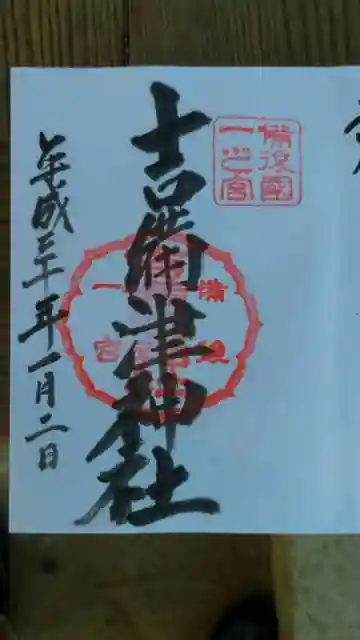 備後國
一之宮
吉備津神社
平成三十年一月二日